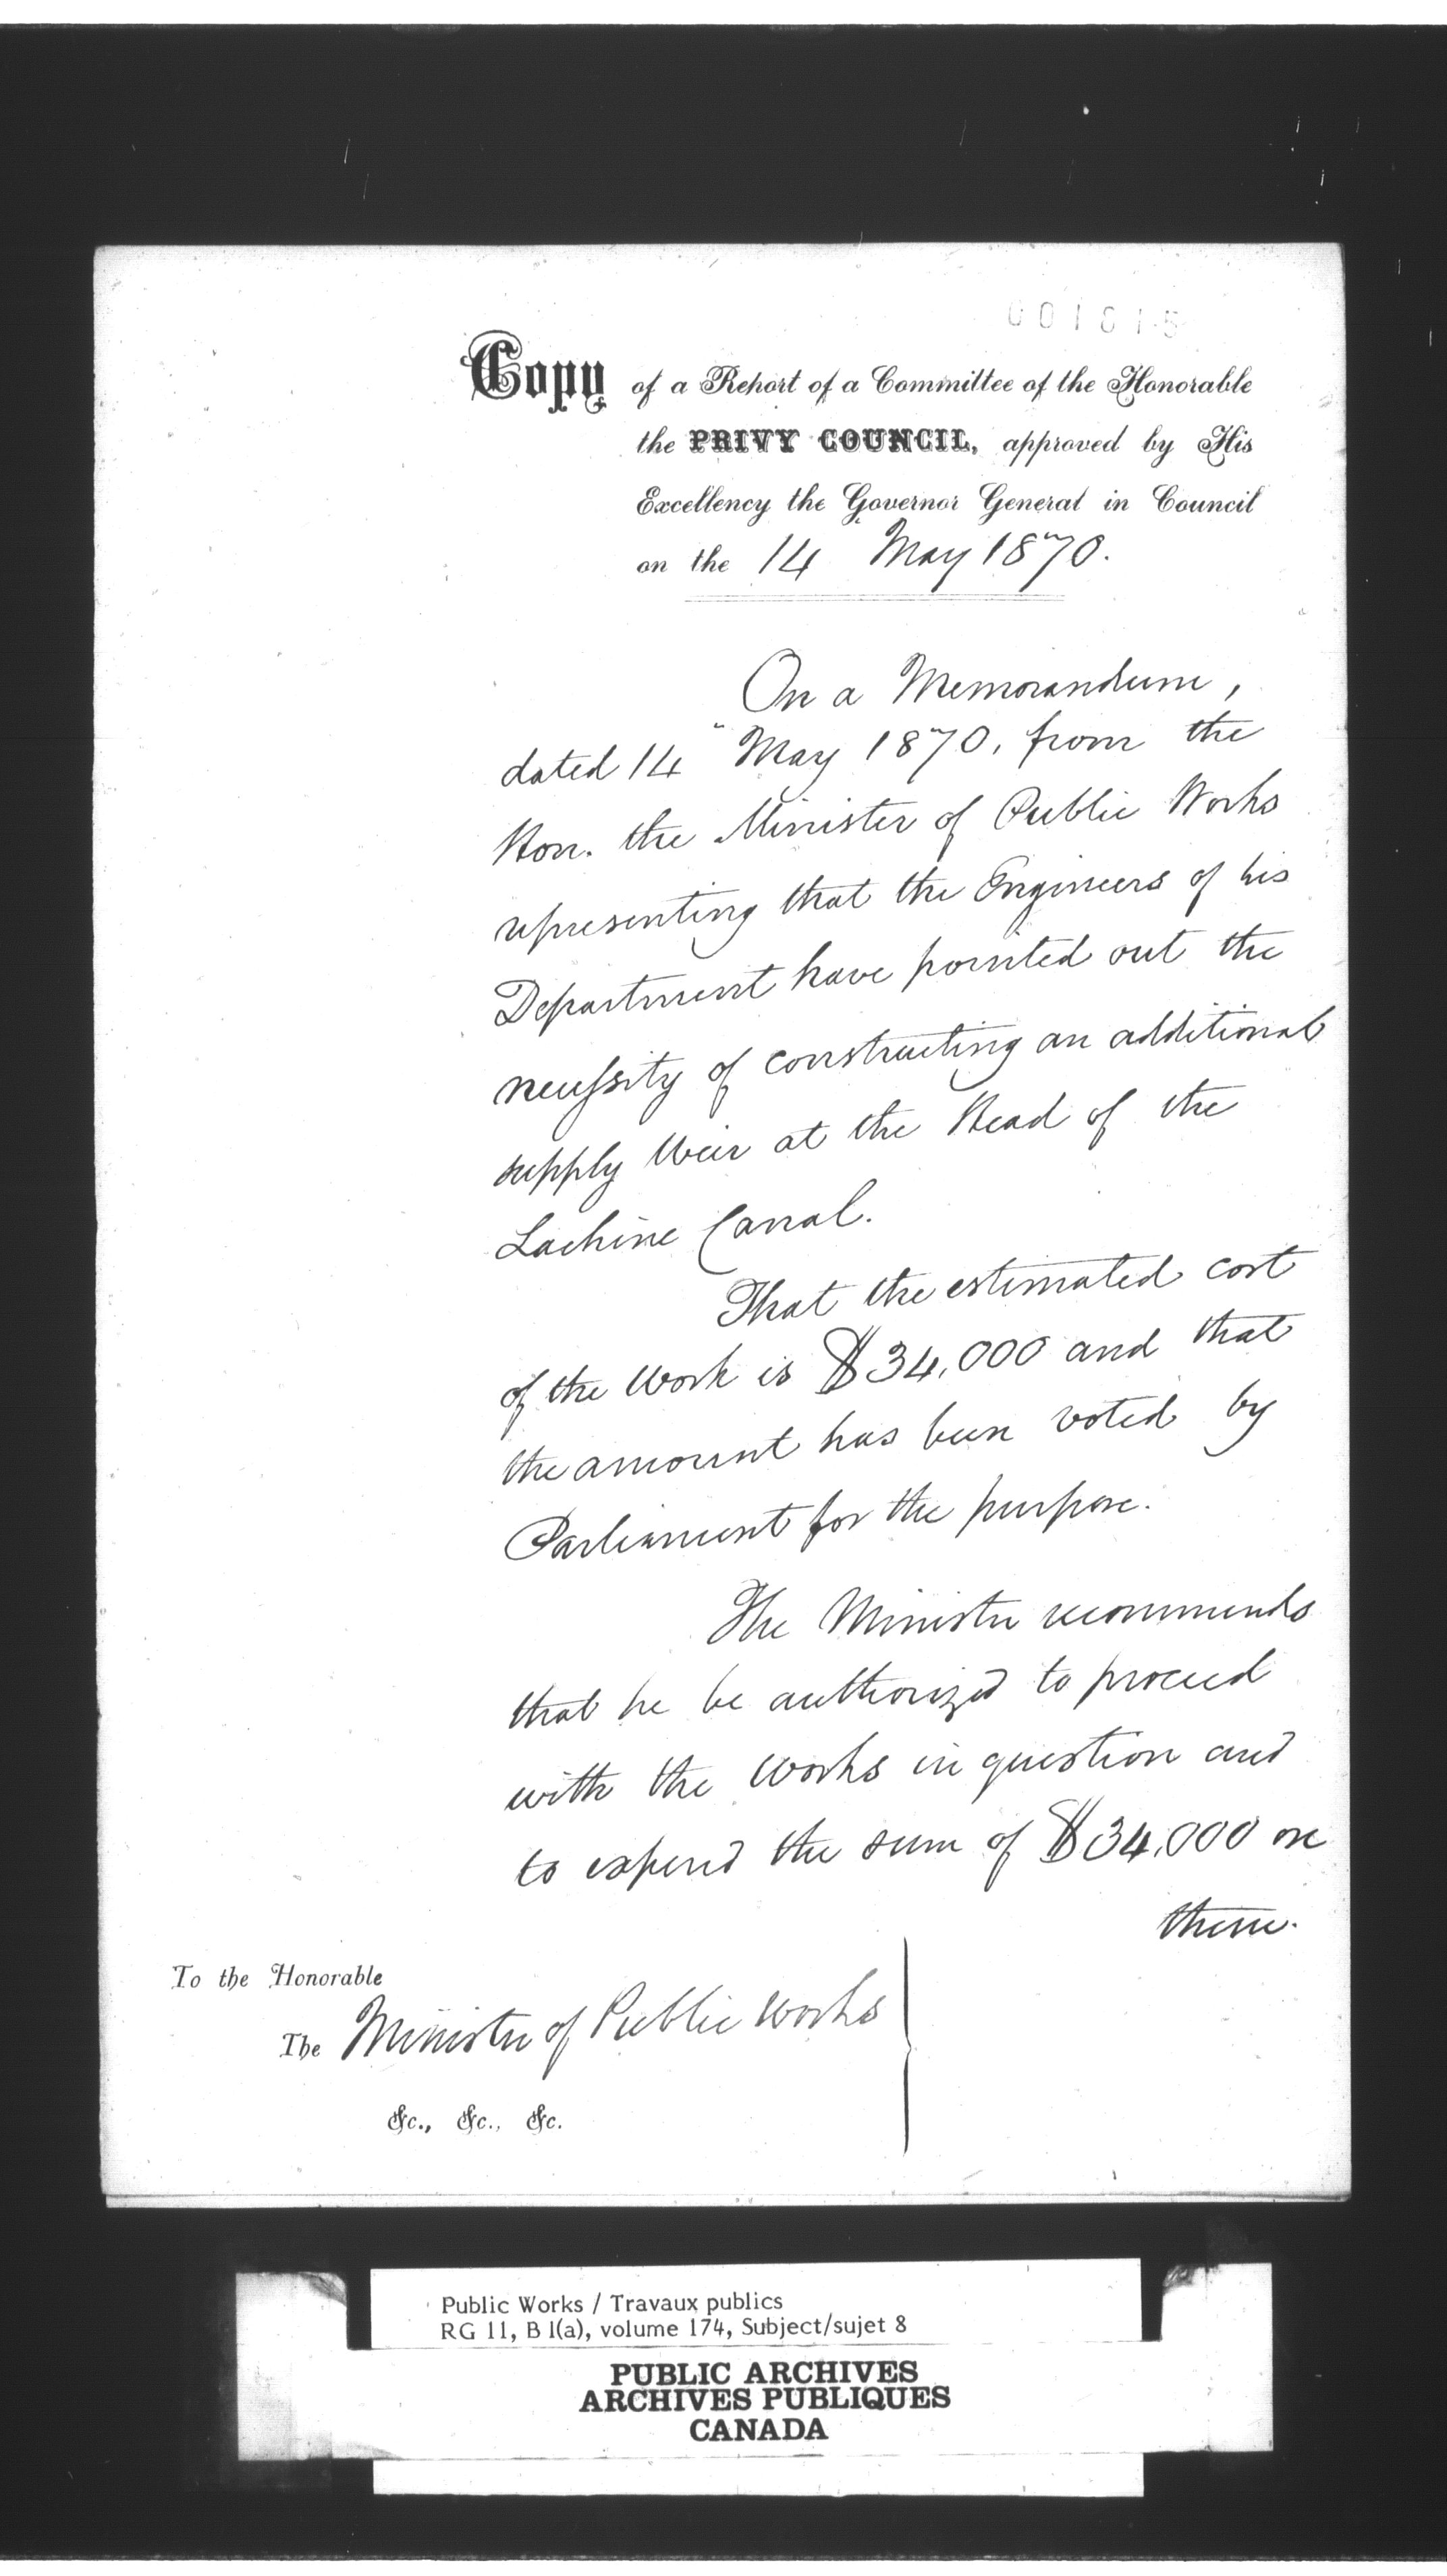 001615
Copy of a Report of a Committee of the Honorable
the PRIVY COUNCIL, approved by His
Excellency the Governor General in Council
on the 14 May 1870.
On a Memorandum,
dated 14" May 1870, from the
Hon. the Minister of Public Works
representing that the Engineers of his
Department have pointed out the
necessity of constructing an additional
supply Weir at the Head of the
Lachine Canal.
That the estimated cost
of the work is $34,000 and that
the amount has been voted by
Parliament for the purpose.
The Minister recommends
that he be authorized to proceed
with the works in question and
to expend the sum of $34,000 on
them.
To the Honorable
The Minister of Public Works
&c., &c., &c.
Public Works / Travaux publics
RG 11, B 1(a), volume 174, Subject/sujet 8
PUBLIC ARCHIVES
ARCHIVES PUBLIQUES
CANADA